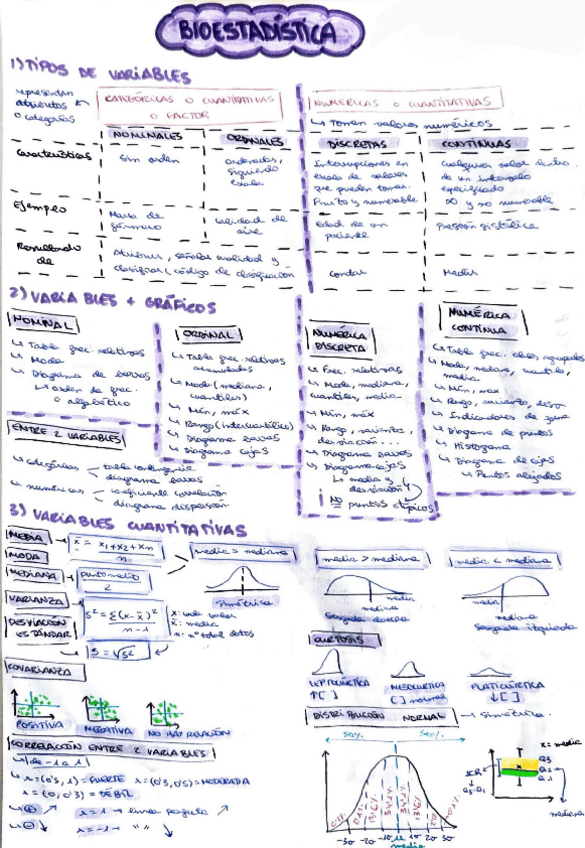 BIOESTADÍSTICA
1) TIPOS DE VARIABLES
representan atributos o categorías
CATEGÓRICAS O CUANTITATIVAS
O FACTOR
NUMÉRICAS O CUANTITATIVAS
↳ Toman valores numéricos
NOMINALES
ORDINALES
DISCRETAS
CONTINUAS
Características
Sin orden
ordenadas,
siguiendo
escala
Interrupciones en
escala de valores
que pueden tomar.
Finito y numerable
Cualquier valor dentro
de un intervalo
especificado
∞ y no numerable
Ejemplo
Marca de
fármaco
calidad de
aire
Edad de un
paciente
Presión sistólica
Resultado
de
Atributos, señalar cualidad y
clasificar (código de clasificación
contar
Medir
2) VARIABLES + GRÁFICOS
NOMINAL
↳ Tabla frec. relativas
↳ Moda
↳ Diagrama de barras
↳ orden de frec.
o alfabético
ORDINAL
↳ Tabla frec. relativas
acumuladas
↳ Moda (mediana,
cuantiles)
↳ Mín, máx
↳ Rango (intercuartílico)
↳ Diagrama barras
↳ Diagrama cajas
NUMÉRICA
DISCRETA
↳ Frec. relativas
↳ Moda, mediana,
cuantiles, media
↳ Mín, máx
↳ Rango, varianza,
desviación...
↳ Diagrama barras
↳ Diagrama cajas
↳ media y
desviación
¡NO puntos atípicos
NUMÉRICA
CONTINUA
↳ Tabla frec. datos agrupados
↳ Moda, mediana, cuantiles,
media
↳ Mín, max
↳ Rango, varianza, desv.
↳ Indicadores de forma
↳ Diagrama de puntos
↳ Histograma
↳ Diagrama de cajas
↳ Puntos alejados
ENTRE 2 VARIABLES
↳ categóricas
tabla contingencia
diagrama barras
↳ numéricas
coeficiente correlación
diagrama dispersión
3) VARIABLES CUANTITATIVAS
MEDIA
x̄ = x1+x2+xn / n
MODA
MEDIANA
punto medio / 2
VARIANZA
S² = Σ(x-x̄)² / n-1
x: cada valor
x̄: media
n: nº total datos
DESVIACIÓN
ESTÁNDAR
S = √S²
media = mediana
simétrica
media > mediana
media
mediana
Sesgada derecha
media < mediana
media
mediana
Sesgada izquierda
CURTOSIS
LEPTOCÚRTICA
↑[ ]
MESOCÚRTICA
[ ] normal
PLATICÚRTICA
↓[ ]
COVARIANZA
POSITIVA
NEGATIVA
NO HAY RELACIÓN
CORRELACIÓN ENTRE 2 VARIABLES
↳ de -1 a 1
↳ r = (0'5, 1) = FUERTE
r = (0'3, 0'5) = MODERADA
r = (0, 0'3) = DÉBIL
r = 1 → línea perfecta
r = -1 → " "
DISTRIBUCIÓN NORMAL → simétrica.
50%
50%
-3σ -2σ -1σ μ 1σ 2σ 3σ
media
x = media
Q3
Q2
Q1
Q3-Q1
mediana